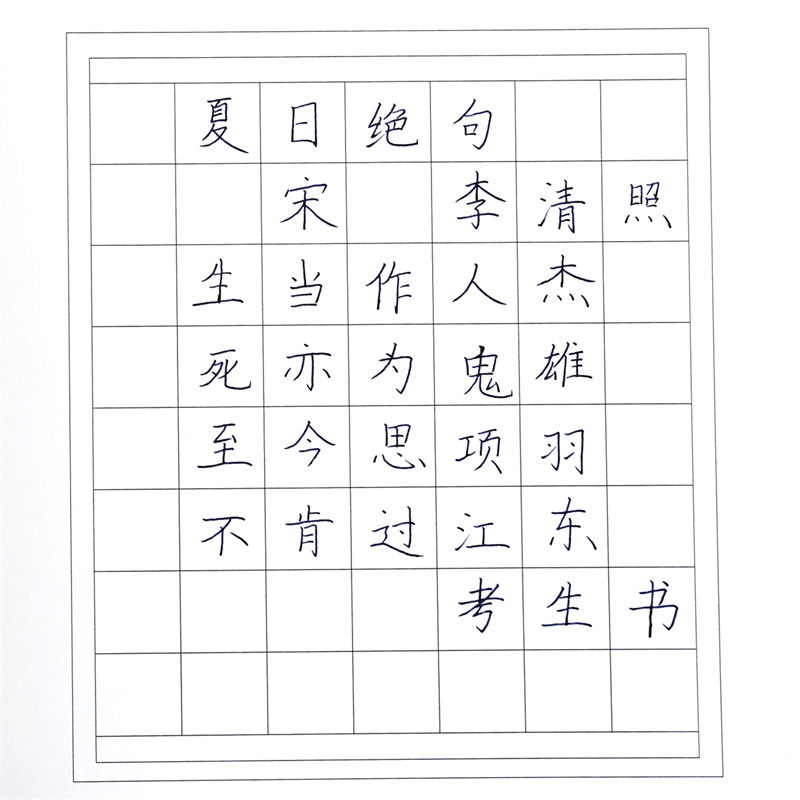 夏日绝句
宋 李清照
生当作人杰
死亦为鬼雄
至今思项羽
不肯过江东
考生书